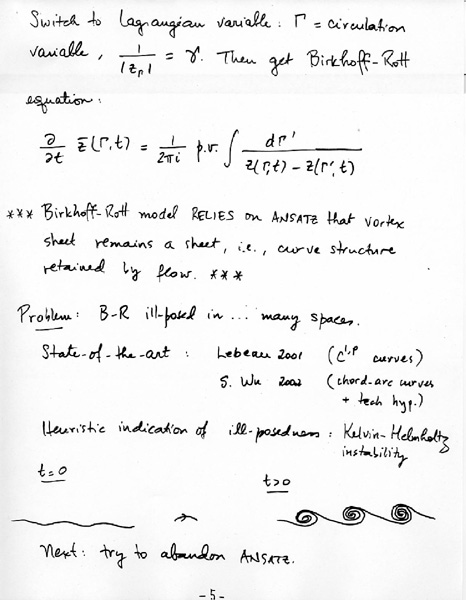 Switch to Lagrangian variable: Γ = circulation
variable, 1/|z_Γ| = γ. Then get Birkhoff-Rott
equation:
∂/∂t z̄(Γ,t) = 1/2πi p.v. ∫ dΓ'/z(Γ,t) - z(Γ',t)
*** Birkhoff-Rott model RELIES on ANSATZ that vortex
sheet remains a sheet, i.e., curve structure
retained by flow. ***
Problem: B-R ill-posed in ... many spaces.
State-of-the-art: Lebeau 2001 (C^{1,β} curves)
S. Wu 2002 (chord-arc curves
+ tech hyp.)
Heuristic indication of ill-posedness: Kelvin-Helmholtz
instability
t=0
t>0
→
Next: try to abandon ANSATZ.
-5-